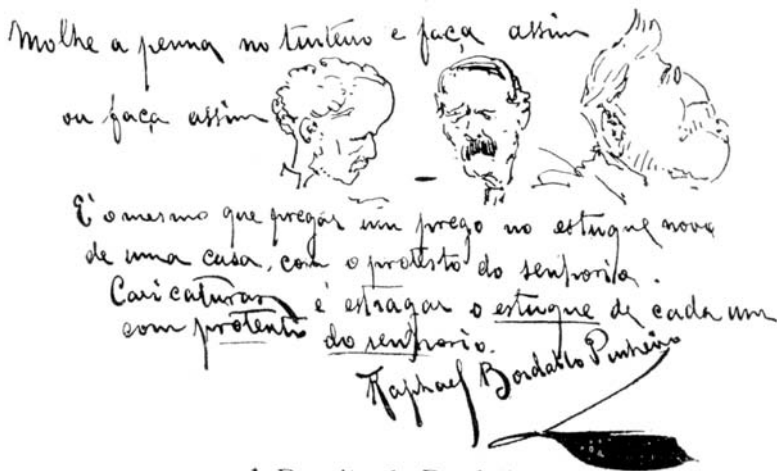 Molhe a penna no tinteiro e faça assim
ou faça assim
E' o mesmo que pregar um prego no estuque novo
de uma casa, com o protesto do senhorio.
Caricaturar é estragar o estuque de cada um
com protesto do senhorio.
Raphael Bordallo Pinheiro